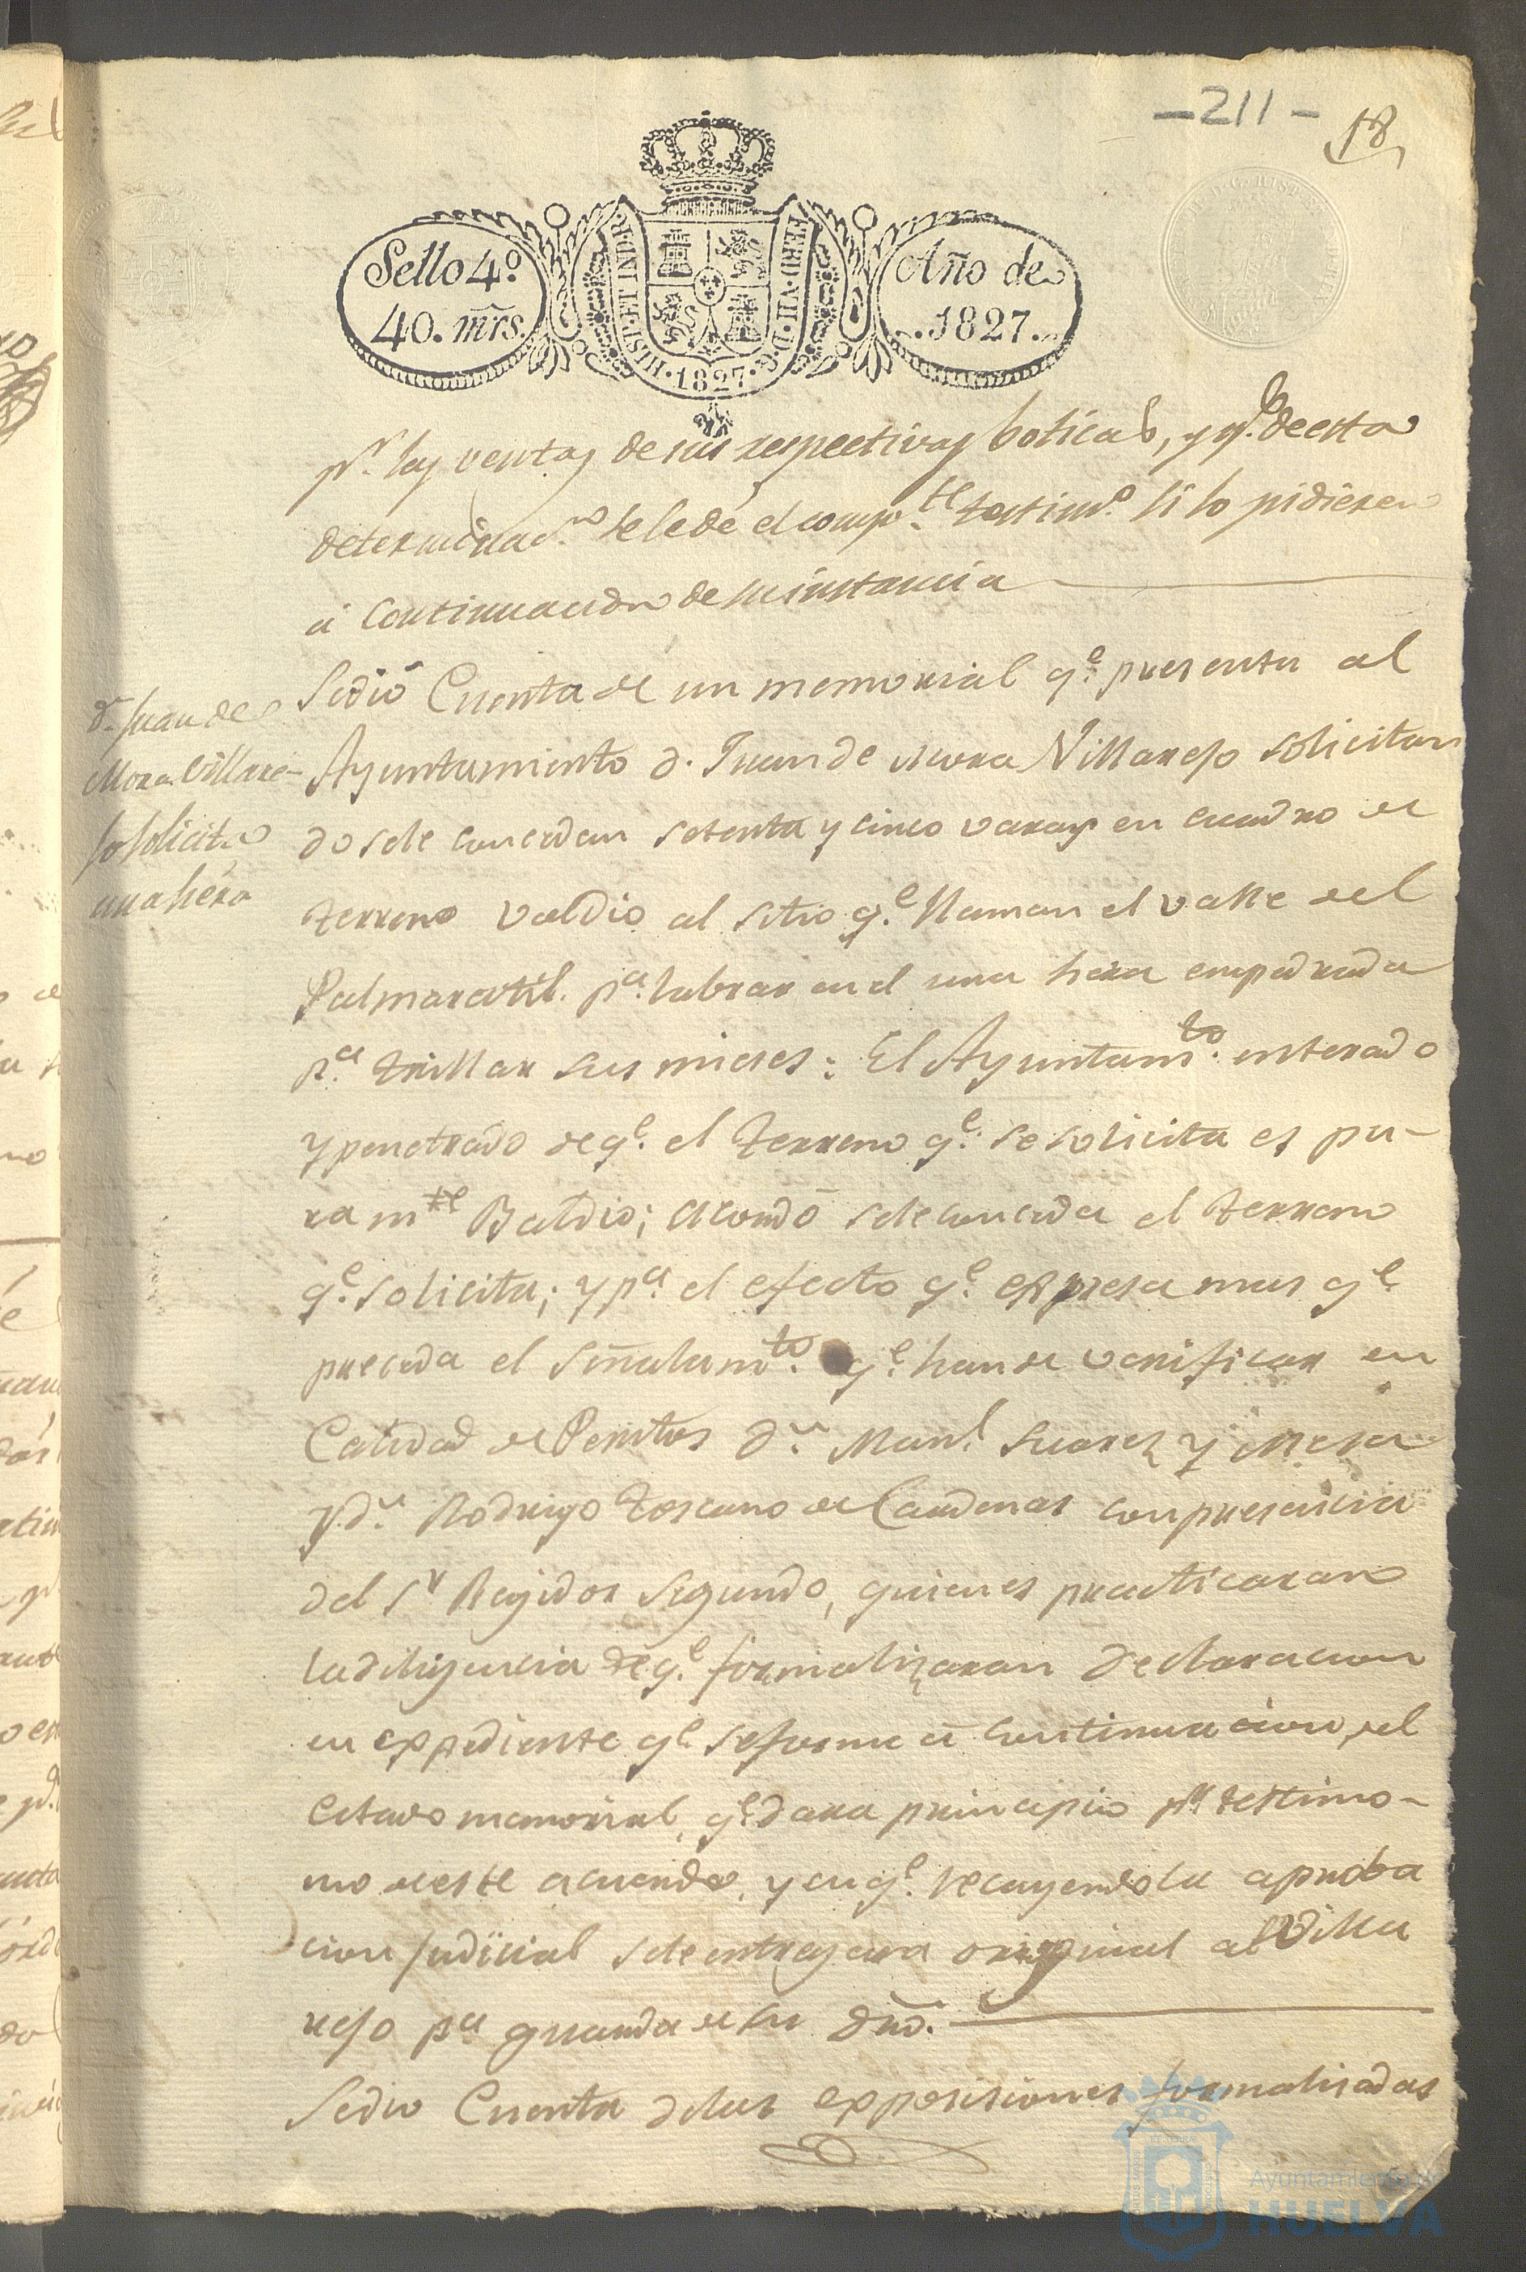 -211-
18
Sello 4.º
40. mrs.
HISP. ET IND. R.
FERD. VII. D. G.
·1827·
Año de
1827.
D. G. HISP
pr. las ventas de sus respectivas boticas, y qe. de esta
determinacn. se le dé el compte. testimo. si lo pidieren
á continuacion de su instancia
Dn. Juan de
Mora Villare-
jo solicita
una héra
Se dió Cuenta de un memorial qe. presenta al
Ayuntamiento D. Juan de Mora Villarejo solicitan
do se le concedan setenta y cinco varas en cuadro de
terreno valdio al sitio qe. llaman el valle del
Palmaratil. pa. labrar en el una hera empedrada
pa. trillar sus mieses: El Ayuntamto. enterado
y penetrado de qe. el terreno qe. se solicita es pu-
ramte Baldio; acordó se le conceda el terreno
qe. solicita; y pa. el efecto qe. expresa mas qe.
preceda el señalamto. qe. han de verificar en
Calidad de Peritos Dn. Manl. Suarez y Mesa
y Dn. Rodrigo Toscano de Cardenas con presencia
del Sr Rejidor Segundo, quienes practicaran
la dilijencia de qe. formalizaran declaracion
en expediente qe. se forme á continuacion del
citado memorial, qe. dara principio pr. testimo-
nio de este acuerdo, y en qe. recayendo la aproba
cion judicial se le entregara original al Villa
rejo pa guarda de su dro.
Se dio Cuenta de las exposiciones formalisadas
Ayuntamiento de
HUELVA